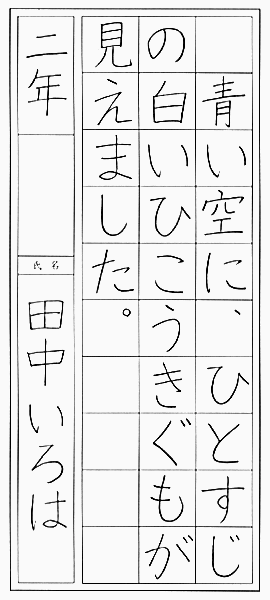 青い空に、ひとすじ
の白いひこうきぐもが
見えました。
二年
氏名
田中いろは